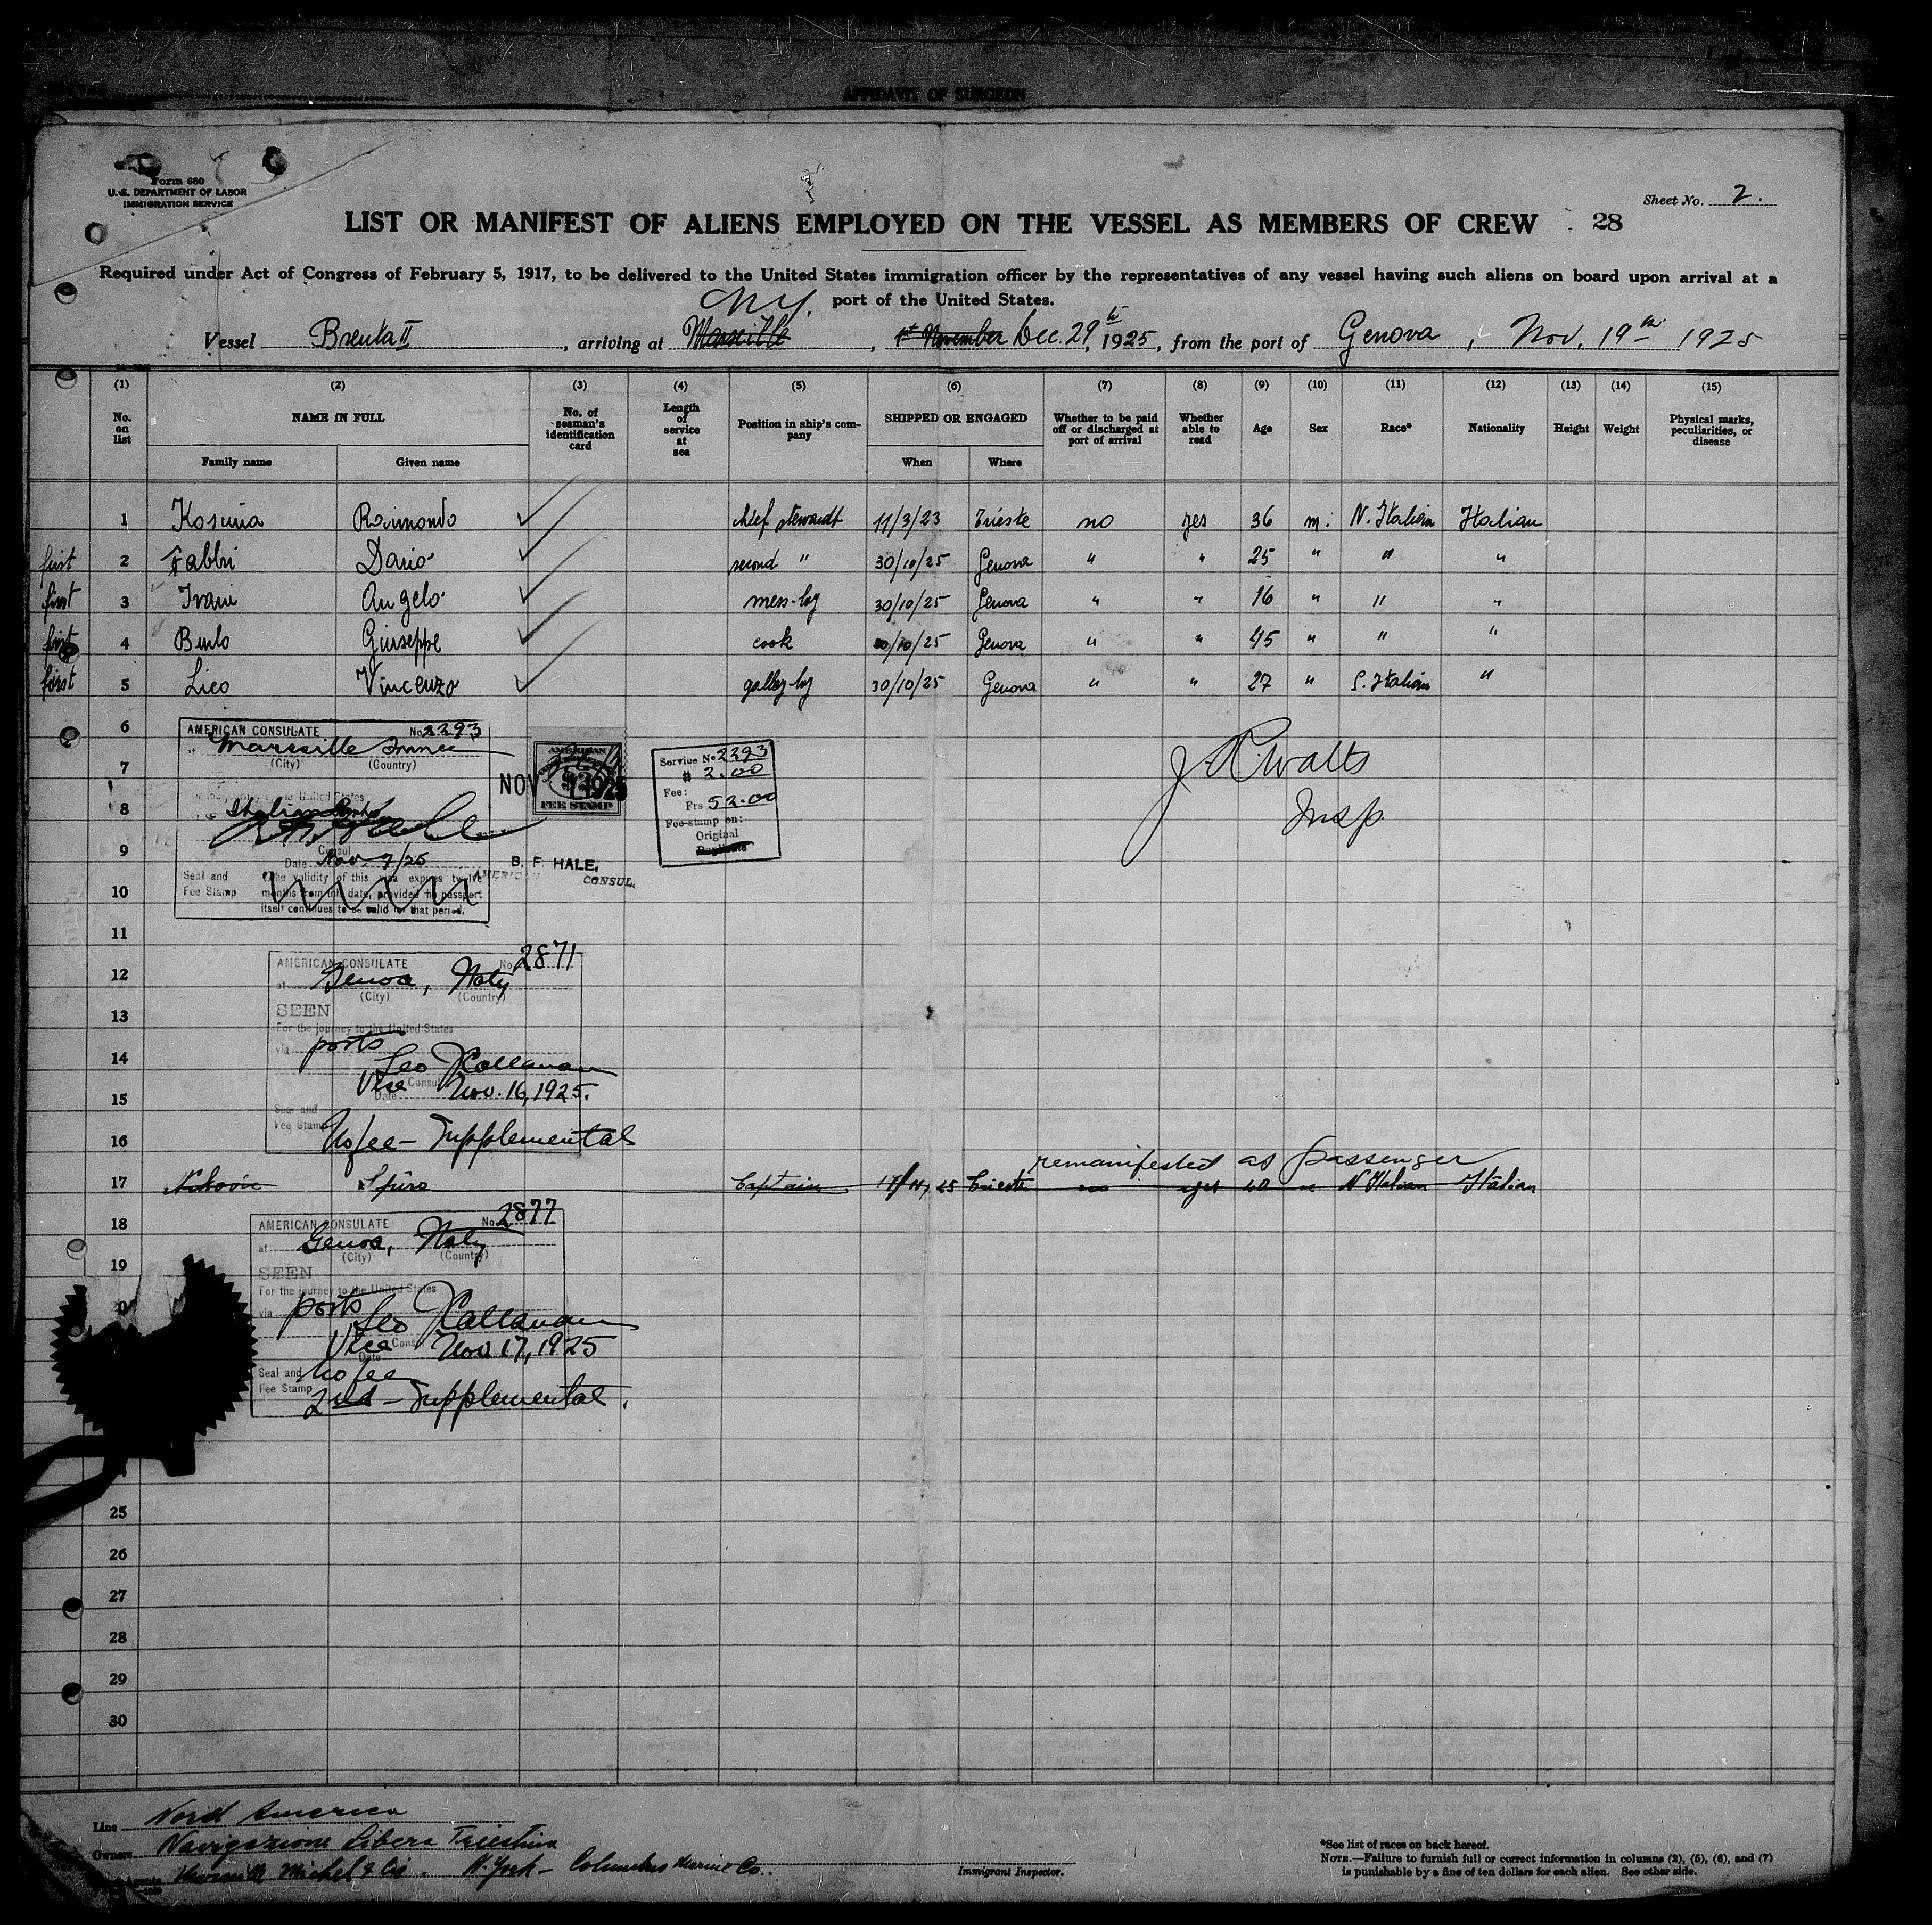 AFFIDAVIT OF SURGEON
Form 680
U. S. DEPARTMENT OF LABOR
IMMIGRATION SERVICE
Sheet No. 2.
LIST OR MANIFEST OF ALIENS EMPLOYED ON THE VESSEL AS MEMBERS OF CREW 28
Required under Act of Congress of February 5, 1917, to be delivered to the United States immigration officer by the representatives of any vessel having such aliens on board upon arrival at a
port of the United States.
N.Y.
Vessel Brenta II, arriving at Marseille, 1st November Dec. 29th, 1925, from the port of Genova, Nov. 19th 1925
(1) (2) (3) (4) (5) (6) (7) (8) (9) (10) (11) (12) (13) (14) (15)
No. on list NAME IN FULL No. of seaman's identification card Length of service at sea Position in ship's company SHIPPED OR ENGAGED Whether to be paid off or discharged at port of arrival Whether able to read Age Sex Race* Nationality Height Weight Physical marks, peculiarities, or disease
Family name Given name When Where
1 Kosuna Raimondo chief stewardt 11/3/23 Trieste no yes 36 m. N. Italian Italian
first 2 Fabbri Dario second " 30/10/25 Genova " " 25 " " "
first 3 Ivani Angelo mess-boy 30/10/25 Genova " " 16 " " "
first 4 Burlo Giuseppe cook 30/10/25 Genova " " 45 " " "
first 5 Lico Vincenzo galley-boy 30/10/25 Genova " " 27 " S. Italian "
6
7
8
9
10
AMERICAN CONSULATE No. 2293
Marseille France
(City) (Country)
Consul
Date Nov. 7/25
Seal and Fee Stamp
The validity of this visa expires twelve
months from this date, provided the passport
itself continues to be valid for that period.
AMERICAN
FEE STAMP
NOV 1925
B. F. HALE,
AMERICAN CONSUL.
Service No 2293
$ 2.00
Fee:
Frs 52.00
Fee-stamp on:
Original
Duplicate
Insp.
11
12
13
14
15
16
AMERICAN CONSULATE No. 2871
at Genoa, Italy
(City) (Country)
SEEN
For the journey to the United States
via ports
Leo J Callanan
Vice Consul
Date Nov. 16, 1925.
Seal and
Fee Stamp
No fee - Supplemental
remanifested as passenger
17 Spiro Captain 25 Trieste no yes 40 m N Italian Italian
18
19
AMERICAN CONSULATE No. 2877
at Genoa, Italy
(City) (Country)
SEEN
For the journey to the United States
via ports
Leo J Callanan
Vice Consul
Date Nov 17, 1925
Seal and
Fee Stamp
No fee
2nd - Supplemental.
25
26
27
28
29
30
Line Nord America
Owners Navigazione Libera Triestina
Agents Marseille Michel & Cie. N. York - Columbus Marine Co.
Immigrant Inspector.
*See list of races on back hereof.
NOTE.—Failure to furnish full or correct information in columns (2), (5), (6), and (7)
is punishable by a fine of ten dollars for each alien. See other side.